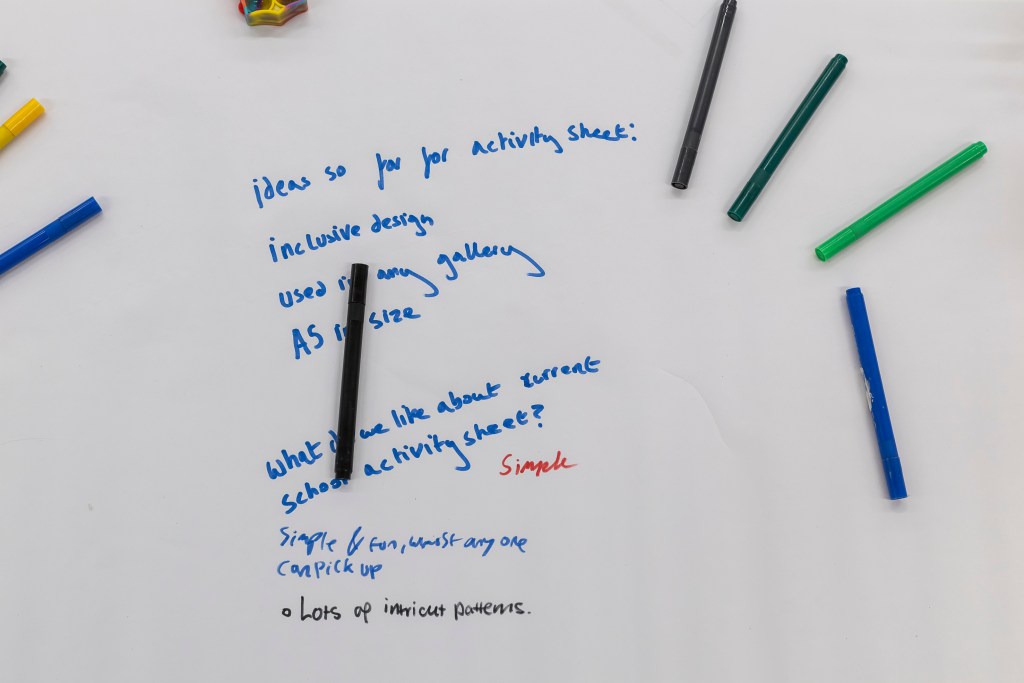 ideas so far for activity sheet:
inclusive design
used in any gallery
A5 in size
what do we like about current
school activity sheet?
Simple
Simple & fun, whilst any one
can pick up
Lots of intricut patterns.